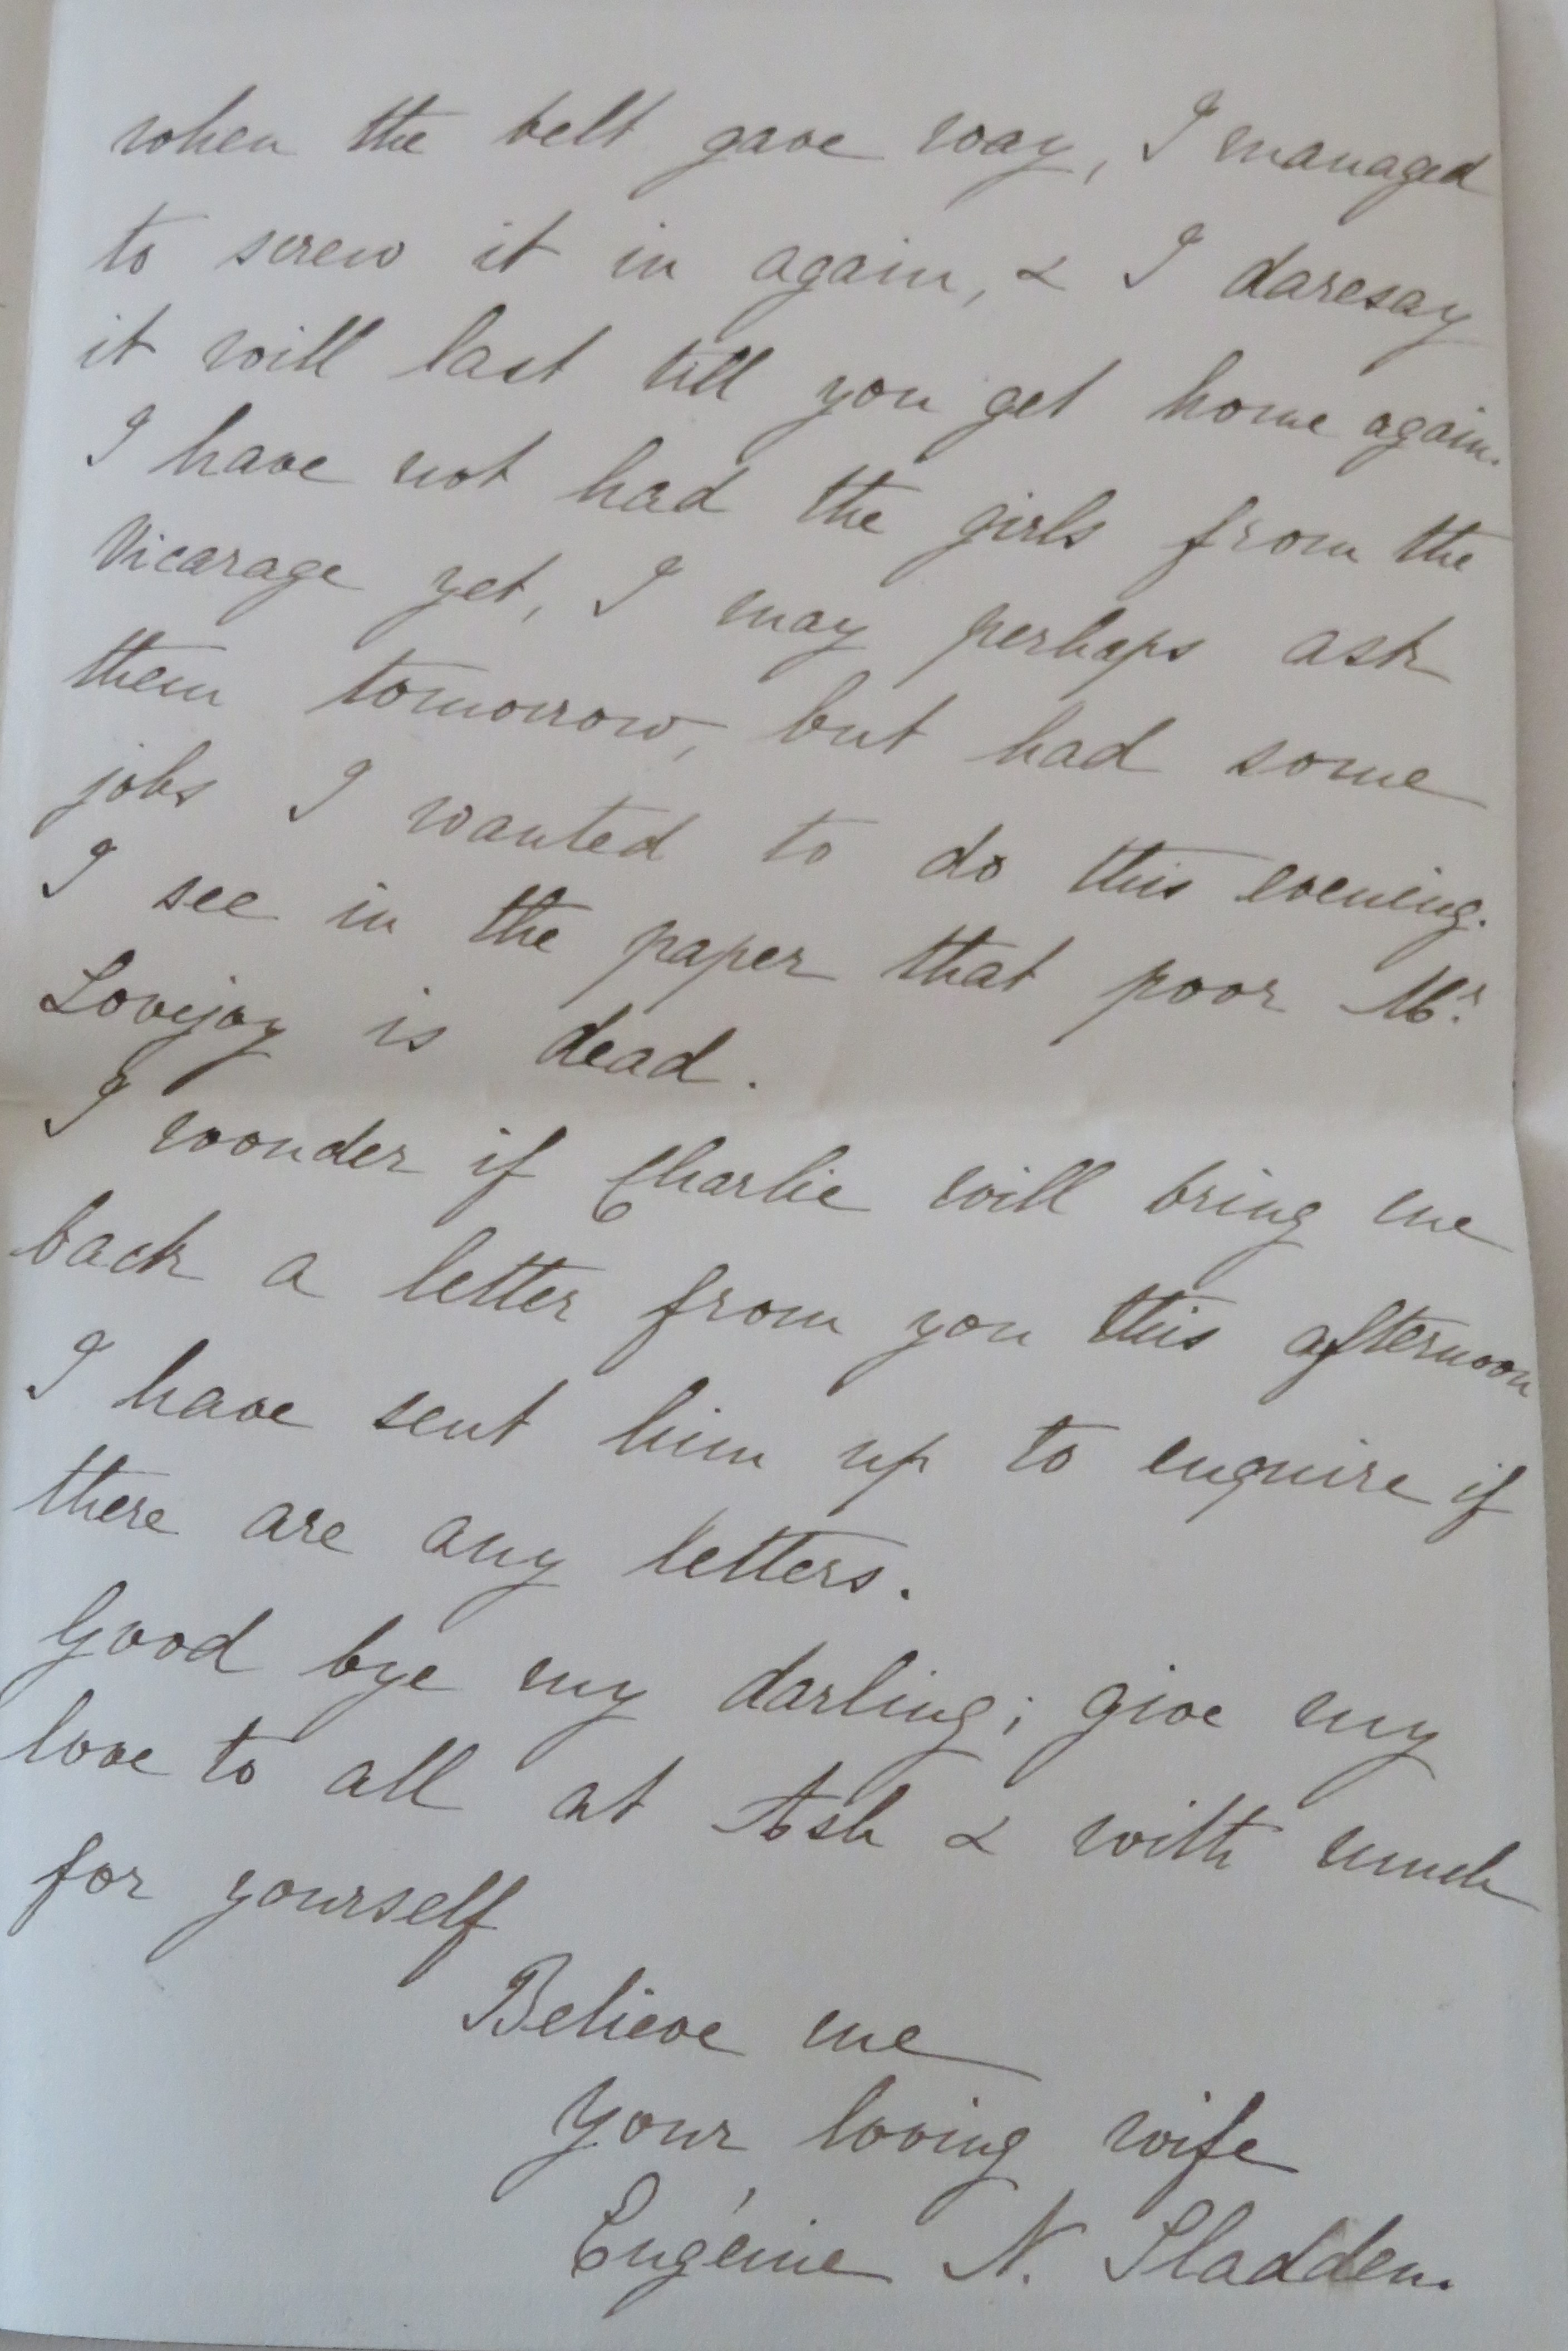 when the belt gave way, I managed
to screw it in again, & I daresay
it will last till you get home again.
I have not had the girls from the
Vicarage yet, I may perhaps ask
them tomorrow, but had some
jobs I wanted to do this evening.
I see in the paper that poor Mr.
Lovejoy is dead.
I wonder if Charlie will bring me
back a letter from you this afternoon
I have sent him up to enquire if
there are any letters.
Good bye my darling; give my
love to all at Ash & with much
for yourself
Believe me
Your loving wife
Eugénie N. Sladden.